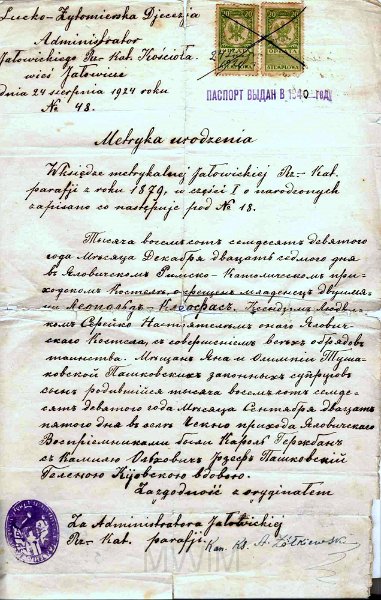 Łucko-Żytomierska Djecezja
Administrator
Jałowickiego Rz-Kat. Kościoła
wieś Jałowicze
dnia 24 sierpnia 1924 roku
№ 48.
20 20
OPŁATA OPŁATA
STEMPLOWA
ПАСПОРТ ВЫДАН В 1940 году
Metryka urodzenia
W księdze metrykalnej Jałowickiej Rz-Kat.
parafji z roku 1879, w części I o narodzonych
zapisano co następuje pod № 18.
Тысяча восемьсотъ семдесятъ девятого
года Мѣсяца Декабря двацатъ седмого дня
въ Яловичскомъ Римско-Католическомъ при-
ходскомъ Костелѣ окрещенъ младенецъ двуиме-
ни Леопольдъ-Клеофасъ. Ксендзомъ Людви-
комъ Серейко Настоятелемъ онаго Ялович-
скаго Костела, съ совершеніемъ всѣхъ обрядовъ
таинства. Мѣщанъ Яна и Олимпіи Туша-
ковской Пашковскихъ законныхъ супруговъ
сынъ родившійся тысяча восемьсотъ семде-
сятъ девятого года Мѣсяца Сентября двацатъ
пятого дня въ селѣ Чекно прихода Яловичскаго
Воспріемниками были Кароль
съ Камилію Юзефъ Пашковскій
Геленою вдовою.
Za zgodność z oryginałem
Za Administratora Jałowickiej
Rz-Kat. parafji. Kan. Ks. A. Żółkiewski
MWiM